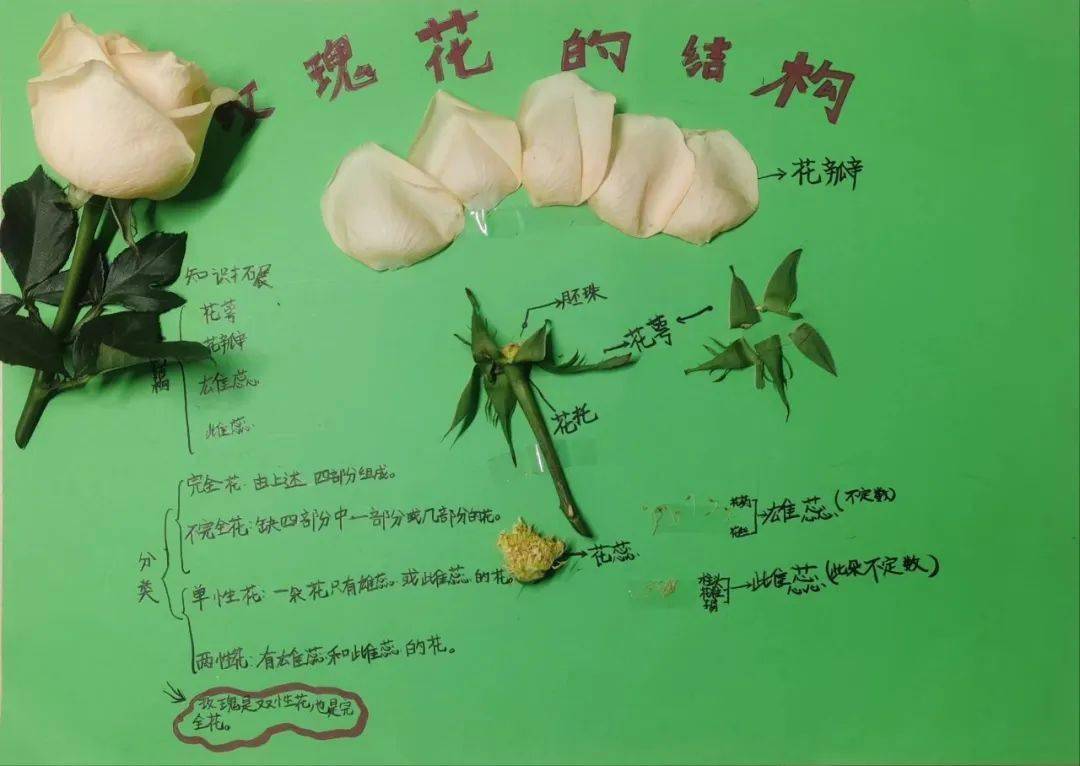 瑰花的结构
花瓣
知识拓展
花萼
花瓣
雄蕊
雌蕊
胚珠
花萼
花托
完全花:由上述四部分组成。
不完全花:缺四部分中一部分或几部分的花。
分类
单性花:一朵花只有雄蕊或雌蕊的花。
两性花:有雄蕊和雌蕊的花。
玫瑰是双性花,也是完
全花。
花蕊
雄蕊(不定数)
雌蕊(此朵不定数)